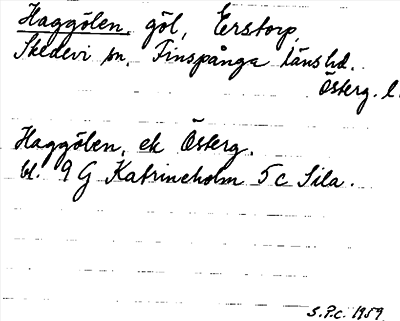 Haggölen, göl, Erstorp,
Skedevi sn, Finspånga länshd.
Österg. l.
Haggölen, ek Österg.
bl. 9 G Katrineholm 5 c Sila.
S.P.C. 1959